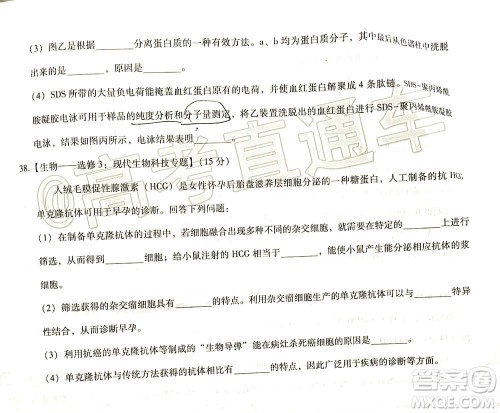 (3) 图乙是根据________分离蛋白质的一种有效方法。a、b 均为蛋白质分子,其中先从色谱柱中洗脱
出来的是________,原因是________。
(4) SDS 所带的大量负电荷能掩盖血红蛋白原有的电荷,并使血红蛋白解聚成 4 条肽链。SDS—聚丙烯酰
胺凝胶电泳可用于样品的纯度分析和分子量测定,将乙装置洗脱出的血红蛋白进行 SDS—聚丙烯酰胺凝胶
电泳,如图丙所示,电泳结果说明________。
38.【生物——选修 3:现代生物科技专题】(15 分)
人绒毛膜促性腺激素(HCG)是女性怀孕后胎盘滋养层细胞分泌的一种糖蛋白,人工制备的抗 HCG
单克隆抗体可用于早孕的诊断。回答下列问题:
(1) 在制备单克隆抗体的过程中,若得到能无限增殖的杂交瘤细胞,就需要在特定的________上进行
筛选,这种杂交瘤细胞________,给小鼠注射的 HCG 相当于________,能使小鼠产生能分泌相应抗体的
浆细胞。
(2) 筛选获得的杂交瘤细胞具有________的特点。利用杂交瘤细胞生产的单克隆抗体可以与特定的抗原特异
性结合,从而诊断早孕。
(3) 利用抗癌的单克隆抗体等制成的“生物导弹”能在病灶杀死癌细胞的原因是________。
(4) 单克隆抗体与传统方法获得的抗体相比,具有________的特点,因此广泛用于疾病的诊断等方面。
高考直通车
答案圈
MXQE.COM